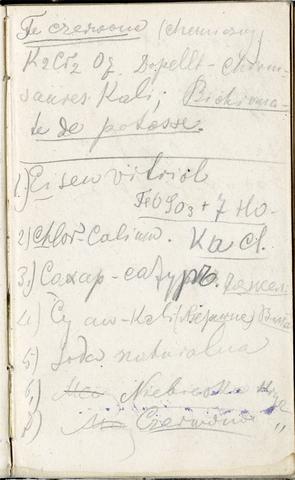 Te czerwone (chemiczny
K2Cr2 O7. Doppelt-Chrom-
saures Kali; Bichroma-
te de potasse.
1) Eisen vitriol
FeO SO3 + 7 HO-
2) Chlor-Calium. KaCl.
3) Сахар-сатуръ.
4) Cyan-Kali
5) Soda naturalna
6) Niebieska
7) Czerwona "